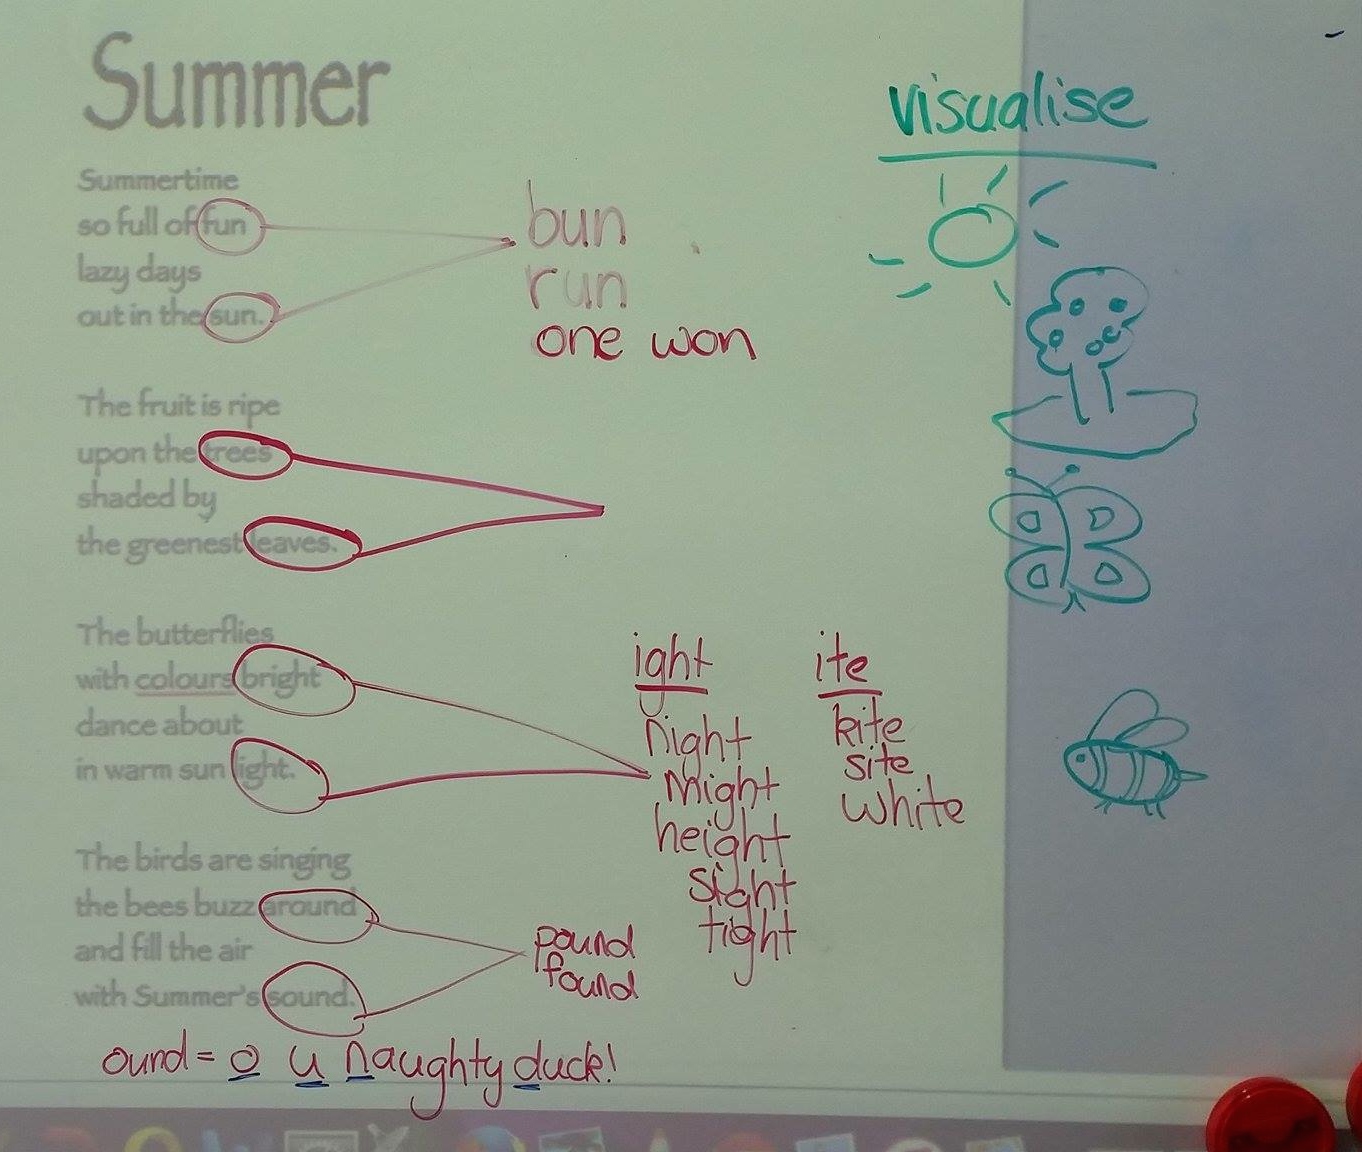 Summer
Summertime
so full of fun
lazy days
out in the sun.
The fruit is ripe
upon the trees
shaded by
the greenest leaves.
The butterflies
with colours bright
dance about
in warm sun light.
The birds are singing
the bees buzz around
and fill the air
with Summer's sound.
ound = o u naughty duck!
bun
run
one won
ight
night
might
height
sight
tight
ite
kite
site
white
pound
found
visualise